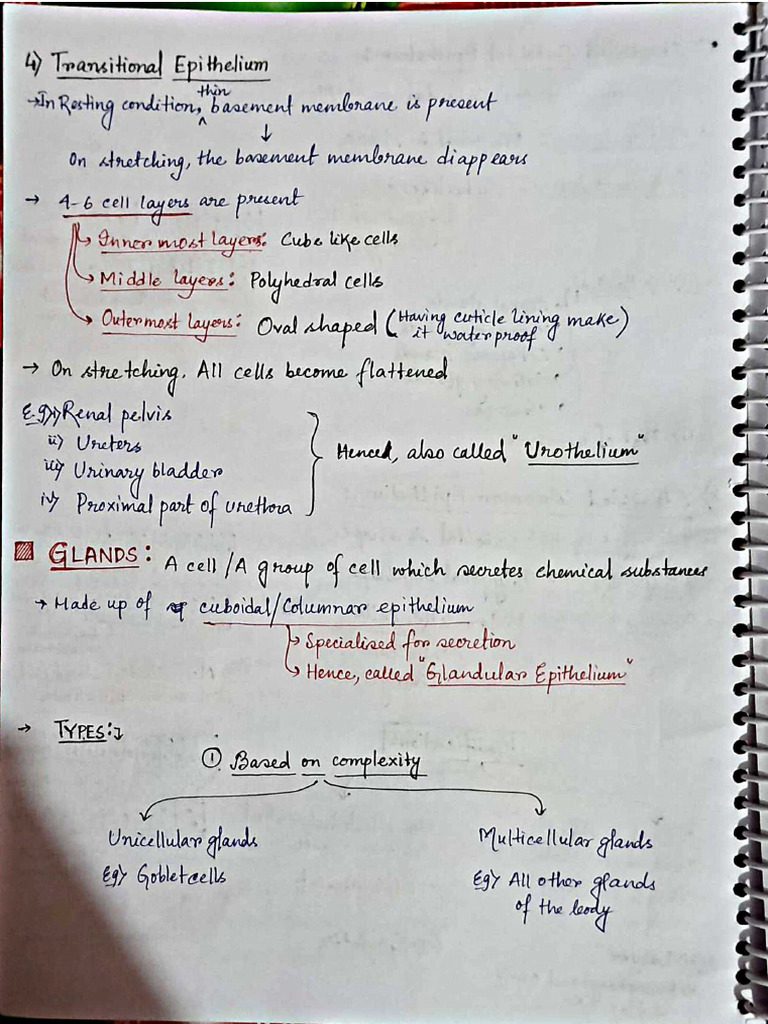 4) Transitional Epithelium
→ In Resting condition, thin basement membrane is present
↓
On stretching, the basement membrane diappears
→ 4-6 cell layers are present
↳ Inner most layers: Cube like cells
↳ Middle layers: Polyhedral cells
↳ Outermost layers: Oval shaped (Having cuticle lining make it waterproof)
→ On stretching, All cells become flattened
Eg) i) Renal pelvis
ii) Ureters
iii) Urinary bladder
iv) Proximal part of urethra
Henced, also called "Urothelium"
GLANDS: A cell/A group of cell which secretes chemical substances
→ Made up of cuboidal/Columnar epithelium
↳ Specialised for secretion
↳ Hence, called "Glandular Epithelium"
→ TYPES:↓
① Based on complexity
Unicellular glands
Eg) Goblet cells
Multicellular glands
Eg) All other glands
of the body